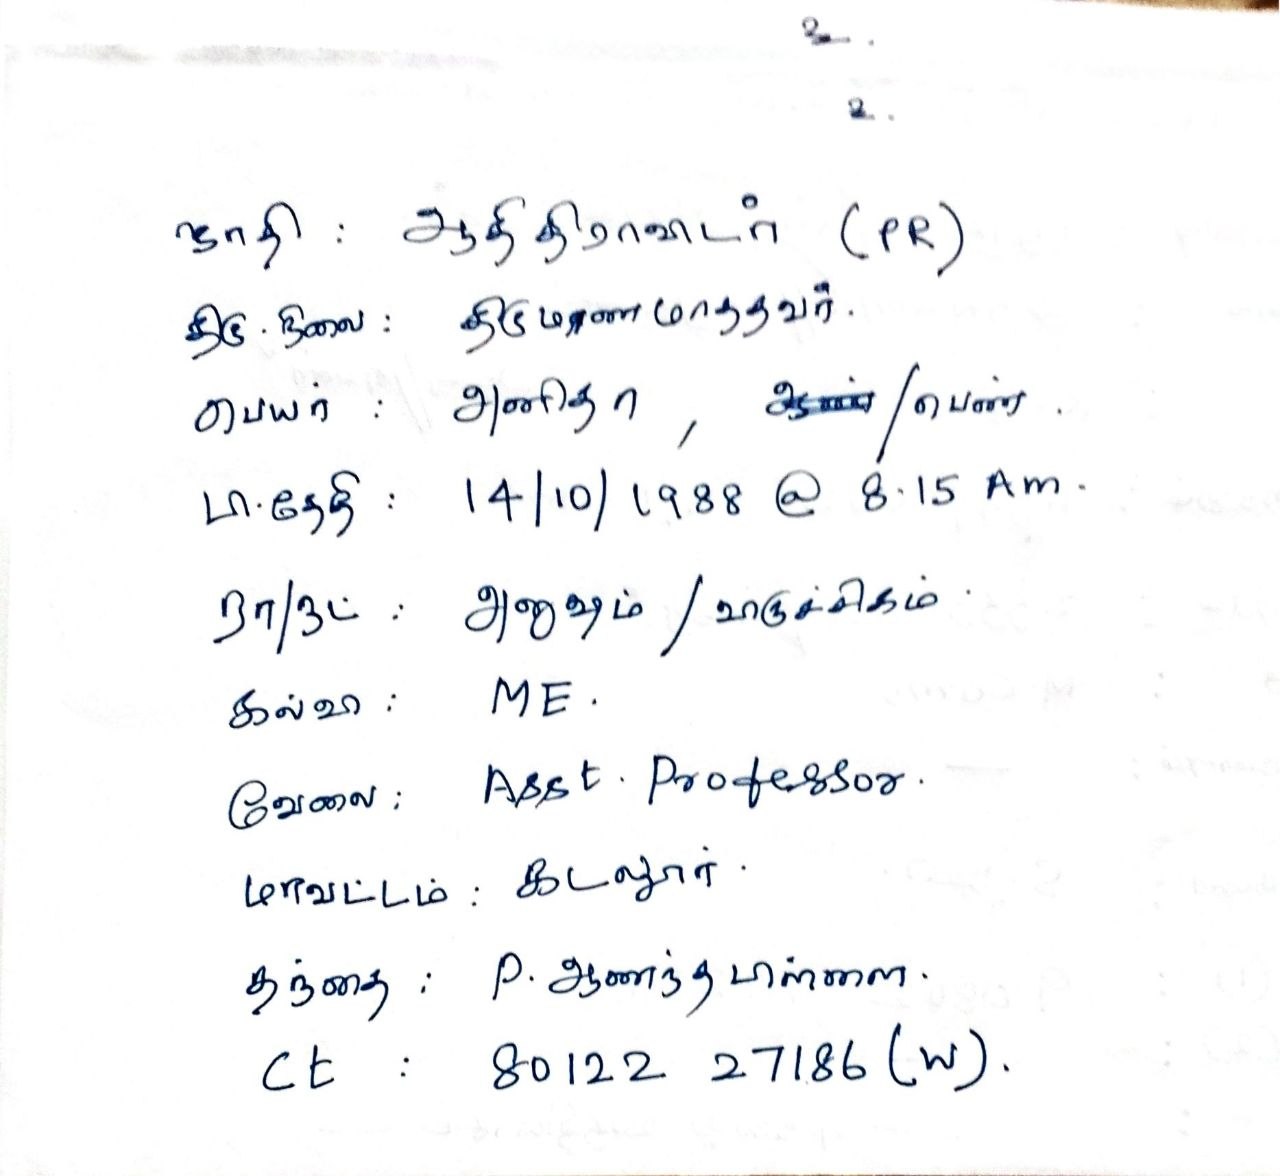 உ.
உ.
சாதி : ஆதி திராவிடர் (PR)
திரு. நிலை : திருமணமாகாதவர்.
பெயர் : அனிதா , ஆண் / பெண்.
பி.தேதி : 14/10/1988 @ 8.15 Am.
ரா/நட் : அனுஷம் / விருச்சிகம்.
கல்வி : ME.
வேலை : Asst. Professor.
மாவட்டம் : கடலூர்.
தந்தை : P. ஆனந்த பிள்ளை.
Ct : 80122 27186 (W).